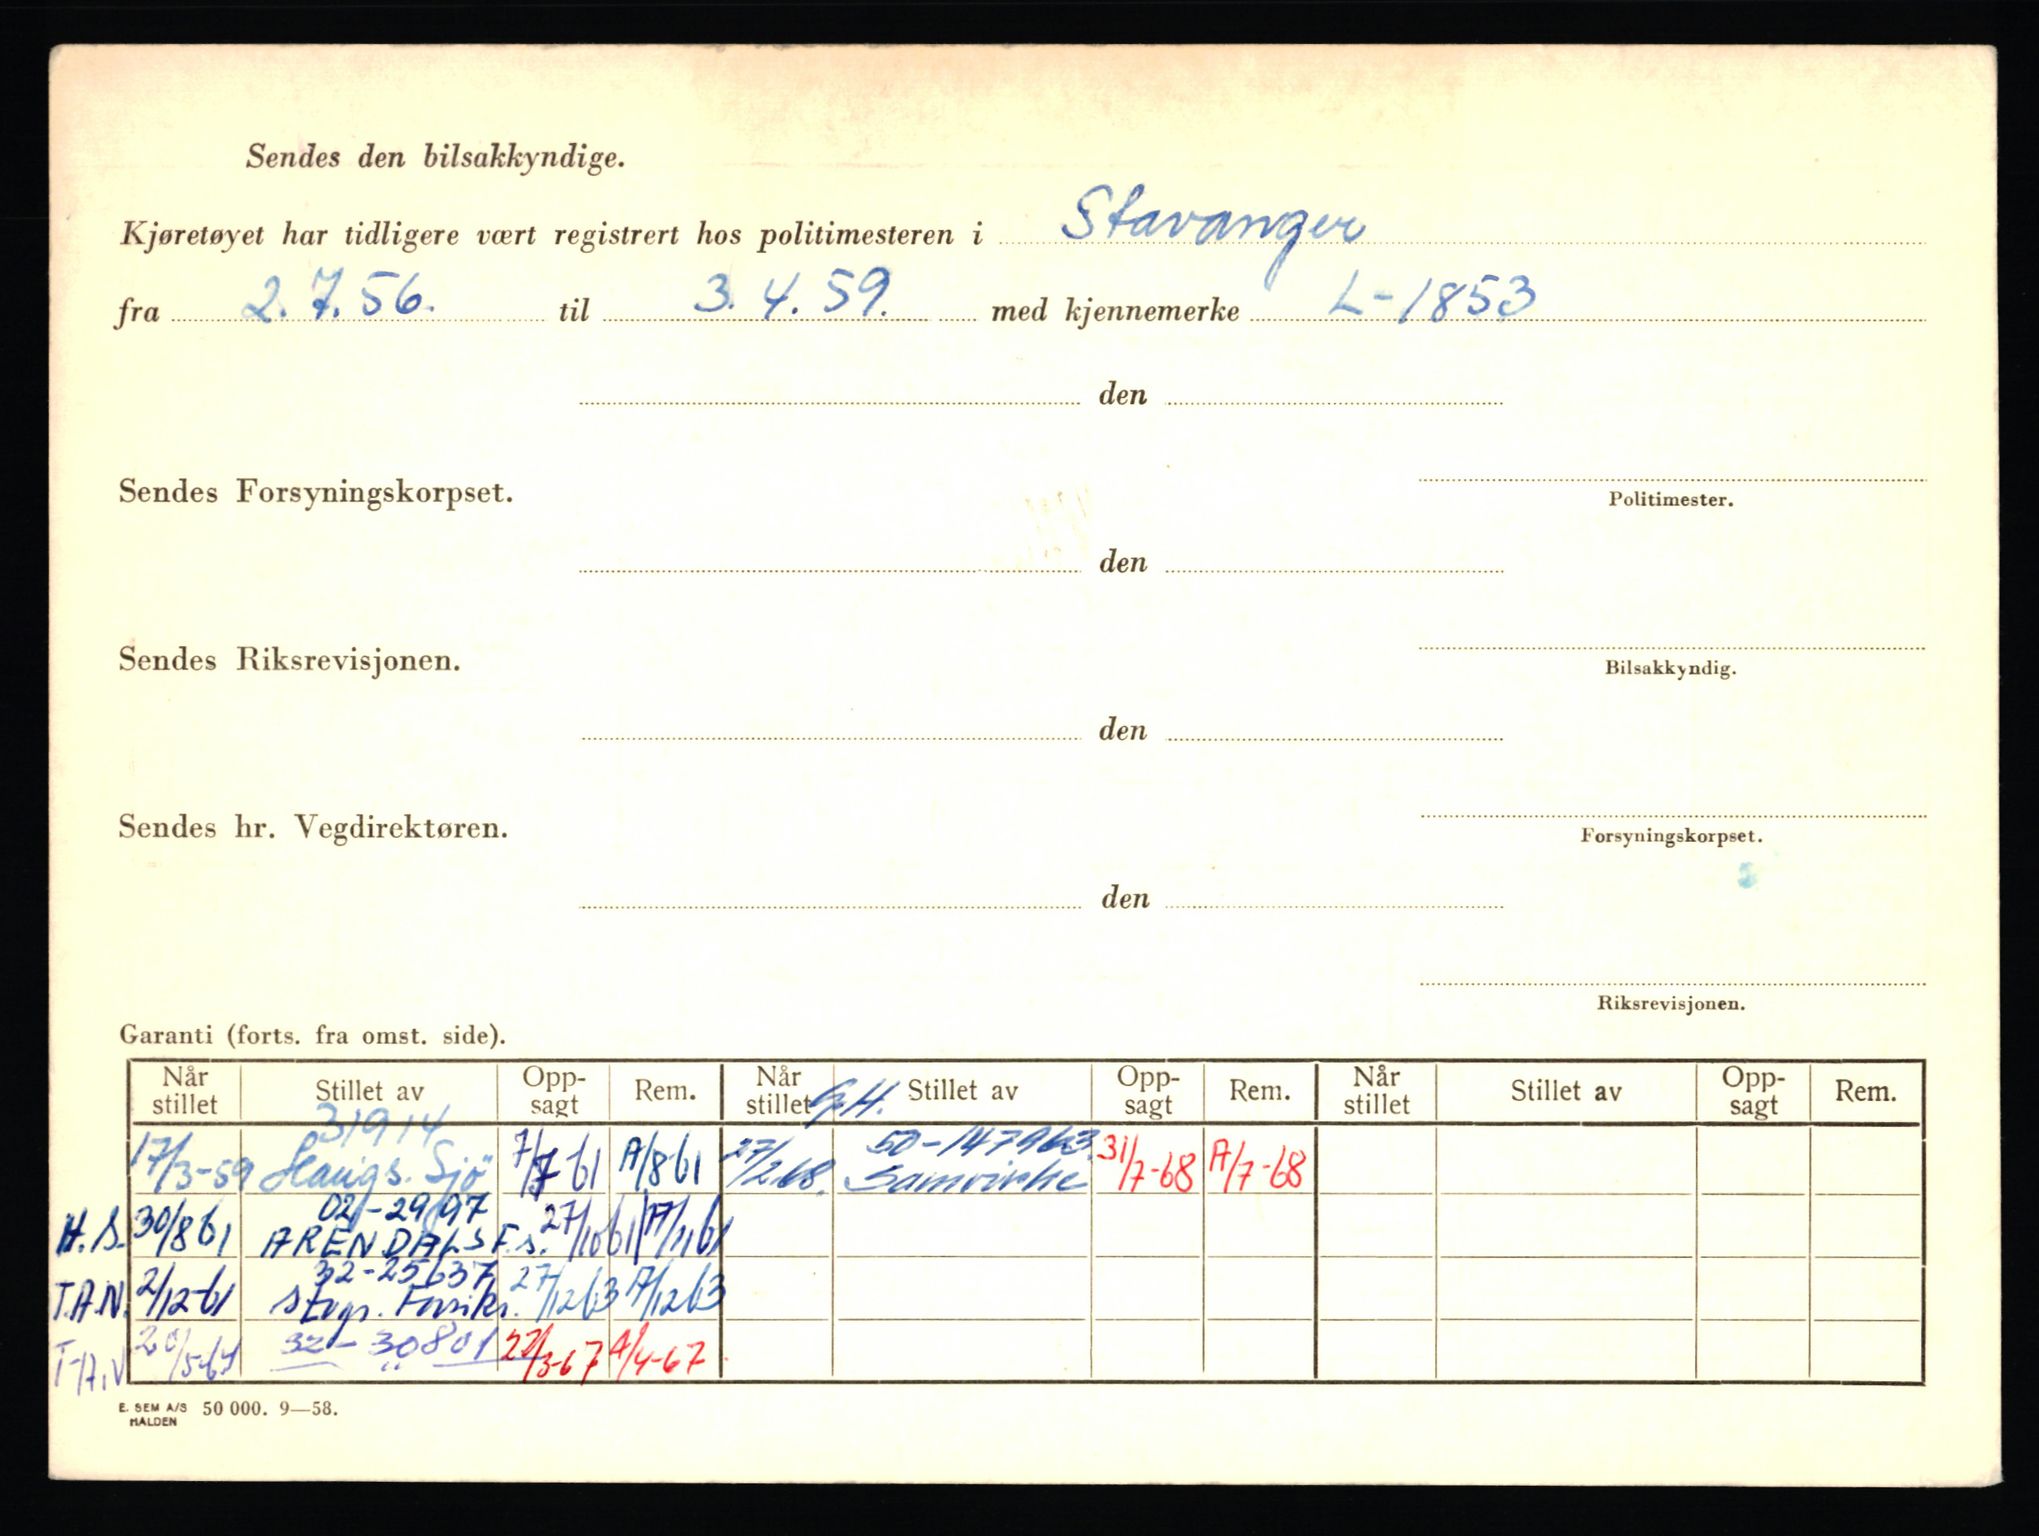 Sendes den bilsakkyndige.
Kjøretøyet har tidligere vært registrert hos politimesteren i Stavanger
fra 2.7.56. til 3.4.59. med kjennemerke L-1853
den
Sendes Forsyningskorpset.
Politimester.
den
Sendes Riksrevisjonen.
Bilsakkyndig.
den
Sendes hr. Vegdirektøren.
Forsyningskorpset.
den
Riksrevisjonen.
Garanti (forts. fra omst. side).
Når stillet Stillet av Opp-sagt Rem. Når stillet G.H. Stillet av Opp-sagt Rem. Når stillet Stillet av Opp-sagt Rem.
31914
17/3-59 Haugs. Sjö 7/7-61 A/8 61 27/2.68. 50-147963. Samvirke 31/7-68 A/7-68
02-29197
H.S. 30/8 61 ARENDALS F.s. 27/10 61 A/11 61
32-25637
T.A.N. 2/12-61 Stvgr. Forsikr. 27/12 63 A/12 63
32-30801 A/4-67
E. SEM A/S 50 000. 9—58.
HALDEN